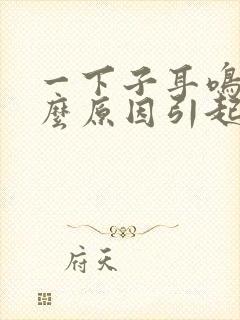 一下子耳鸣
麼原因引起
府天